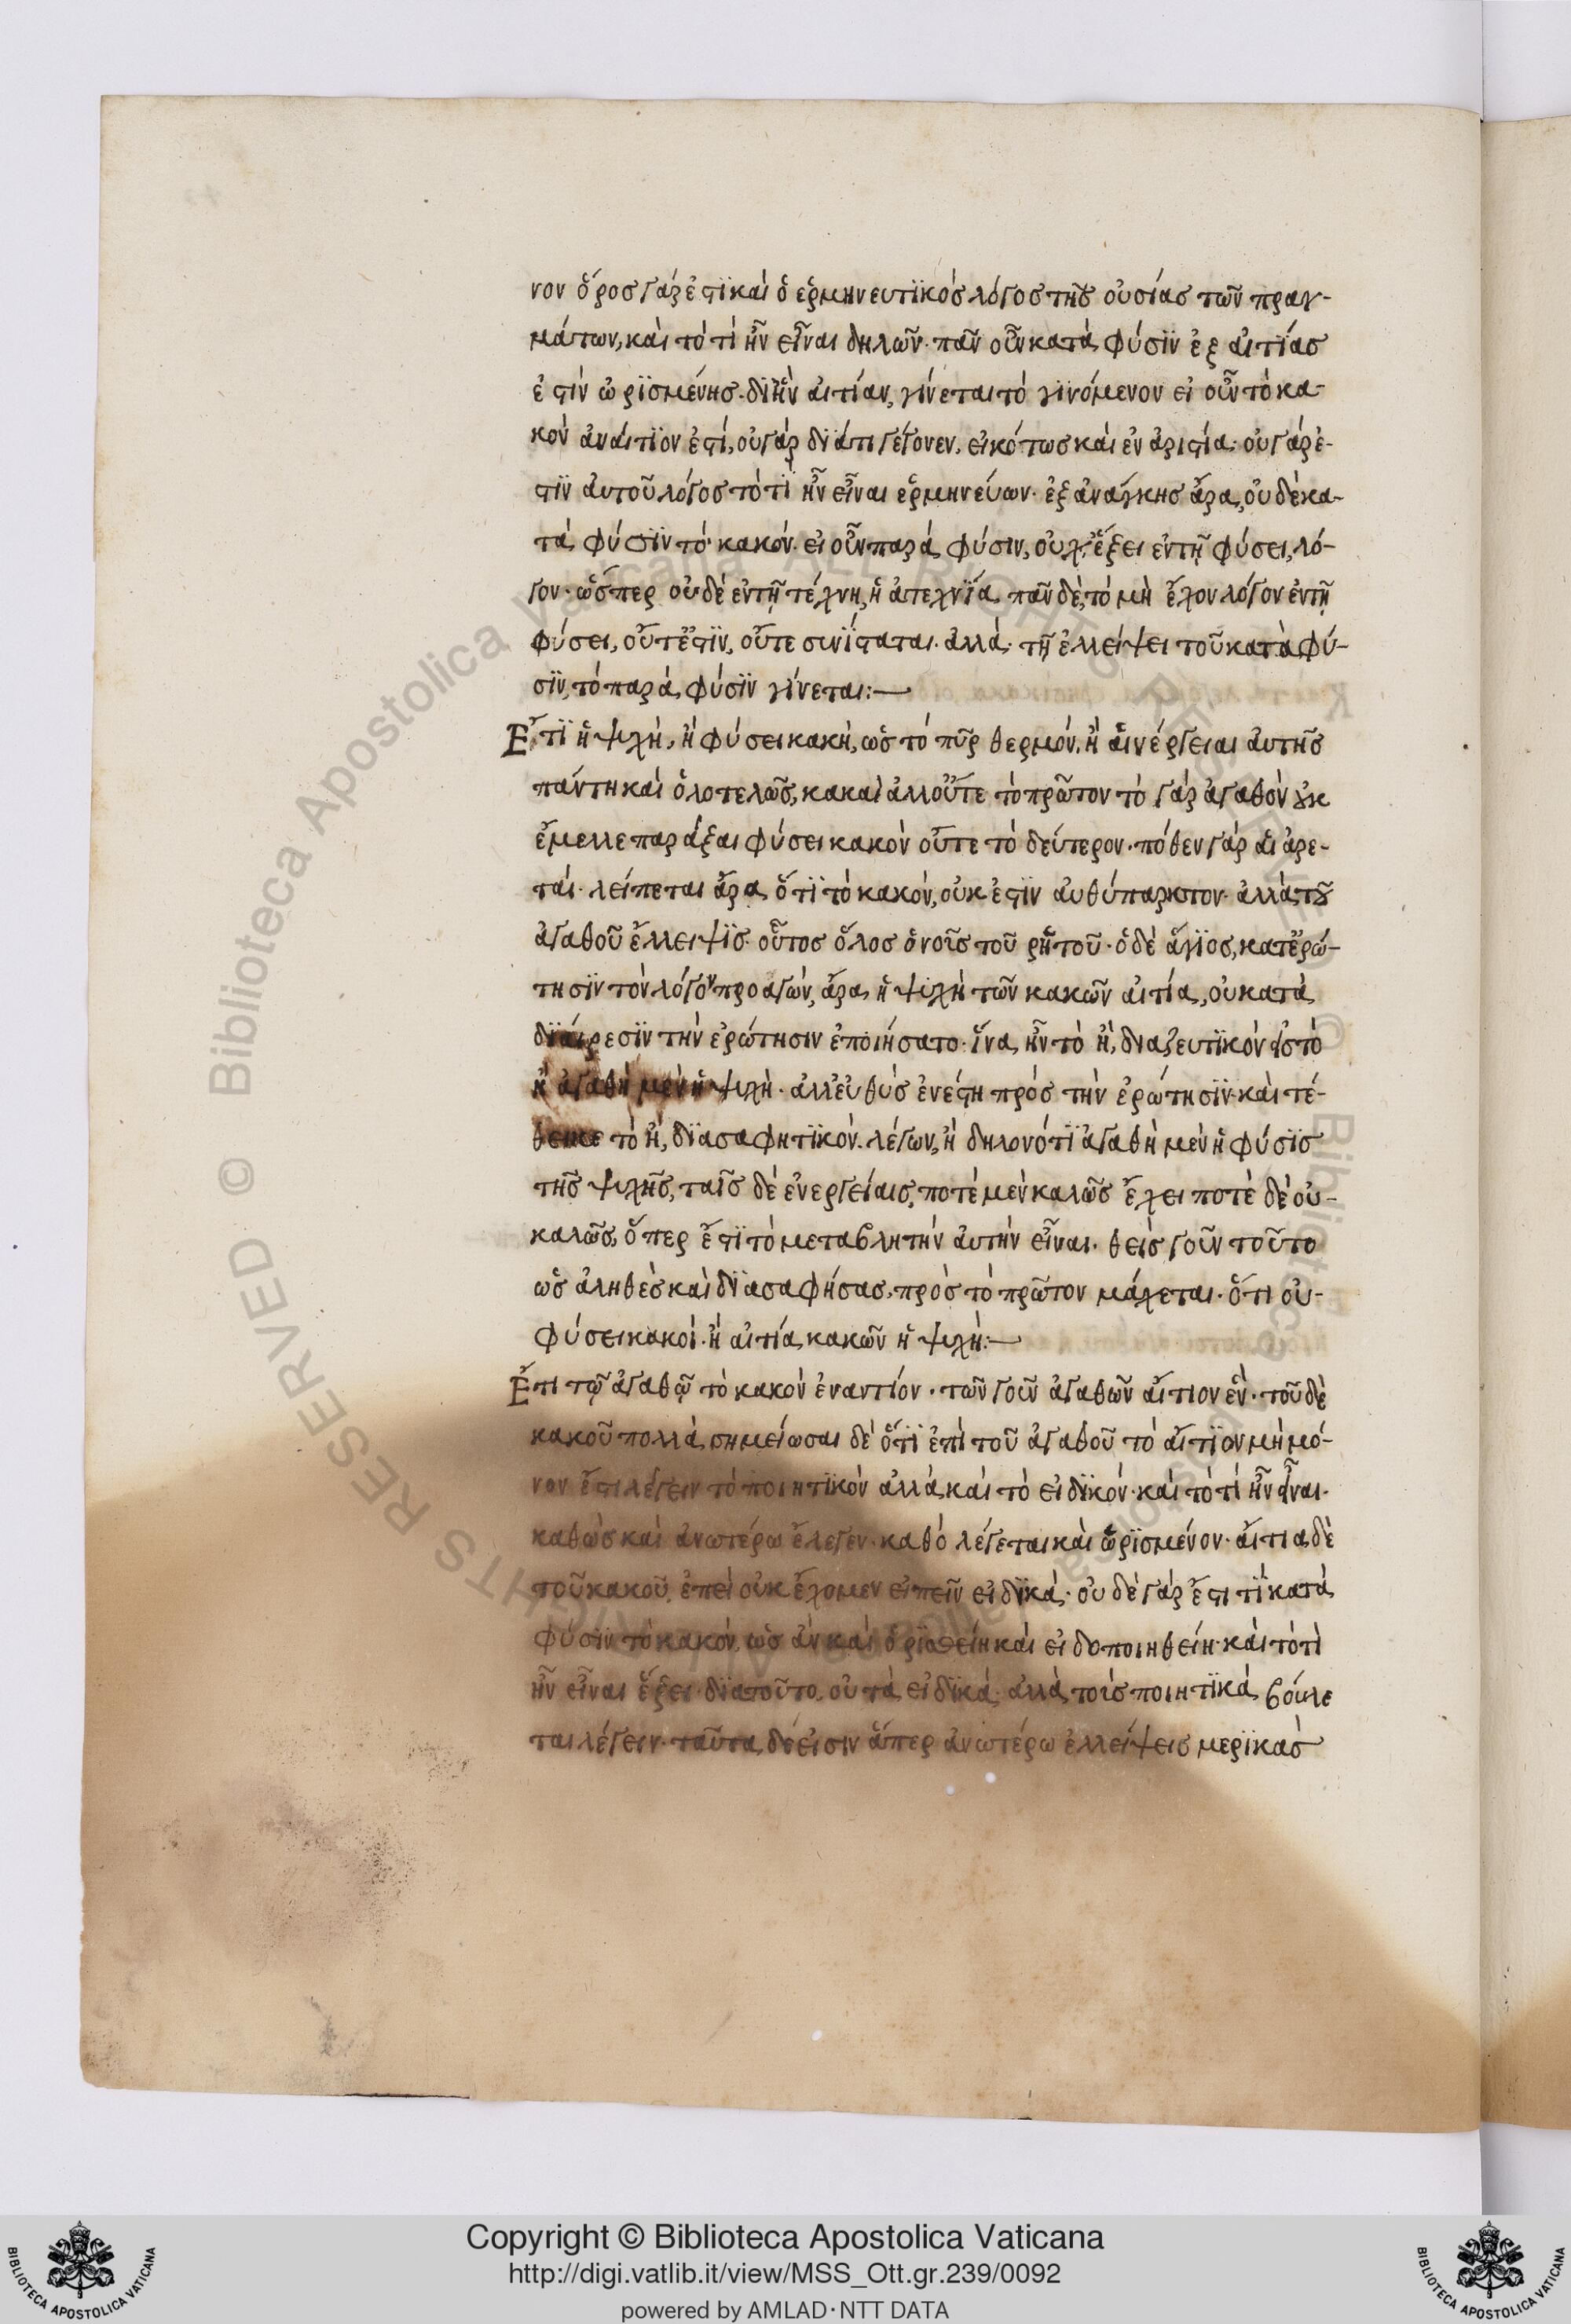 νον ὅρος γάρ ἐστϊ καὶ ὁ ἑρμηνευτϊκὸς λόγος τῆς οὐσίας τῶν πραγ-
μάτων, καὶ τὸ τί ἦν εἶναι δηλῶν. πᾶν οὖν κατὰ φύσϊν ἐξ αἰτίας
ἐστὶν ὡρϊσμένης. δϊ ἣν αἰτίαν, γίνεται τὸ γϊνόμενον εἰ οὖν τὸ κα-
κὸν ἀναίτϊον ἐστί, οὐ γὰρ δϊά τι γέγονεν, εἰκότως καὶ ἐν ἀριστία. οὐ γάρ ἐ-
στϊν αὐτοῦ λόγος τὸ τὶ ἦν εἶναι ἑρμηνεύων. ἐξ ἀνάγκης ἄρα, οὐδὲ κα-
τὰ φύσϊν τὸ κακόν. εἰ οὖν παρὰ φύσιν, οὐχ ἕξει ἐν τῇ φύσει, λό-
γον. ὥσπερ οὐδὲ ἐν τῇ τέχνῃ, ἡ ἀτεχνΐα. πᾶν δὲ, τὸ μὴ ἔχον λόγον ἐν τῇ
φύσει, οὔτ ἔστϊν, οὔτε συνΐσταται. ἀλλὰ τῇ ἐλλείψει τοῦ κατὰ φύ-
σϊν, τὸ παρὰ φύσϊν γίνεται:—
Ἔτϊ ἡ ψυχὴ, ἢ φύσει κακὴ, ὡς τὸ πῦρ θερμόν. ἢ αἱ ἐνέργειαι αὐτῆς
πάντη καὶ ὁλοτελῶς, κακαὶ ἀλλ οὔτε τὸ πρῶτον τὸ γὰρ ἀγαθὸν οὐκ
ἔμελλε παράξαι φύσει κακὸν οὔτε τὸ δεύτερον. πόθεν γὰρ αἱ ἀρε-
ταί. λείπεται ἄρα ὅτϊ τὸ κακόν, οὐκ ἐστϊν αὐθύπαρκτον. ἀλλὰ τοῦ
ἀγαθοῦ ἔλλειψϊς. οὗτος ὅλος ὁ νοῦς τοῦ ρητοῦ. ὁ δὲ ἅγϊος, κατ ἐρώ-
τησϊν τὸν λόγον προαγών, ἄρα ἡ ψυχὴ τῶν κακῶν αἰτία, οὐ κατὰ
δϊαίρεσϊν τὴν ἐρώτησιν ἐποιήσατο. ἵνα ἦν τὸ ἢ, διαζευτϊκὸν εἰς τὸ
ἢ ἀγαθὴ μὲν ἡ ψυχὴ. ἀλλ εὐθὺς ἐνέστη πρὸς τὴν ἐρώτησϊν. καὶ τέ-
θεικε τὸ ἢ, δϊασαφητϊκόν. λέγων, ἢ δηλονότϊ ἀγαθὴ μὲν ἡ φύσϊς
τῆς ψυχῆς, ταῖς δὲ ἐνεργείαις, ποτὲ μὲν καλῶς ἔχει ποτὲ δὲ οὐ-
καλῶς, ὅπερ ἔστϊ τὸ μεταβλητὴν αὐτὴν εἶναι. θεὶς γοῦν τοῦτο
ὡς ἀληθὲς καὶ δϊασαφήσας, πρὸς τὸ πρῶτον μάχεται. ὅτι οὐ-
φύσει κακοὶ. ἢ αἰτία κακῶν ἡ ψυχὴ:—
Ἔτι τῷ ἀγαθῷ τὸ κακὸν ἐναντίον. τῶν γοῦν ἀγαθῶν αἴτιον ἓν. τοῦ δὲ
κακοῦ πολλὰ σημείωσαι δὲ ὅτϊ ἐπὶ τοῦ ἀγαθοῦ τὸ αἴτϊον μὴ μό-
νον ἔστι λέγειν τὸ ποιητϊκὸν ἀλλὰ καὶ τὸ εἰδϊκόν. καὶ τὸ τί ἦν εἶναι.
καθὼς καὶ ἀνωτέρω ἔλεγεν. καθὸ λέγεται καὶ ὡρϊσμένον. αἴτια δὲ
τοῦ κακοῦ, ἐπεὶ οὐκ ἔχομεν εἰπεῖν εἰδϊκά. οὐδὲ γὰρ ἔστι τϊ κατὰ
φύσϊν τὸ κακὸν, ὡς ἂν καὶ ὁρϊσθείη καὶ εἰδοποιηθείη. καὶ τὸ τὶ
ἦν εἶναι ἕξει. δϊατοῦτο, οὐ τὰ εἰδϊκά. ἀλλὰ τοὶς ποιητϊκὰ βούλε
ται λέγειν. ταῦτα δέ εἰσιν ἅπερ ἀνωτέρω ἐλλείψεις μερϊκὰς
Copyright © Biblioteca Apostolica Vaticana
http://digi.vatlib.it/view/MSS_Ott.gr.239/0092
powered by AMLAD·NTT DATA